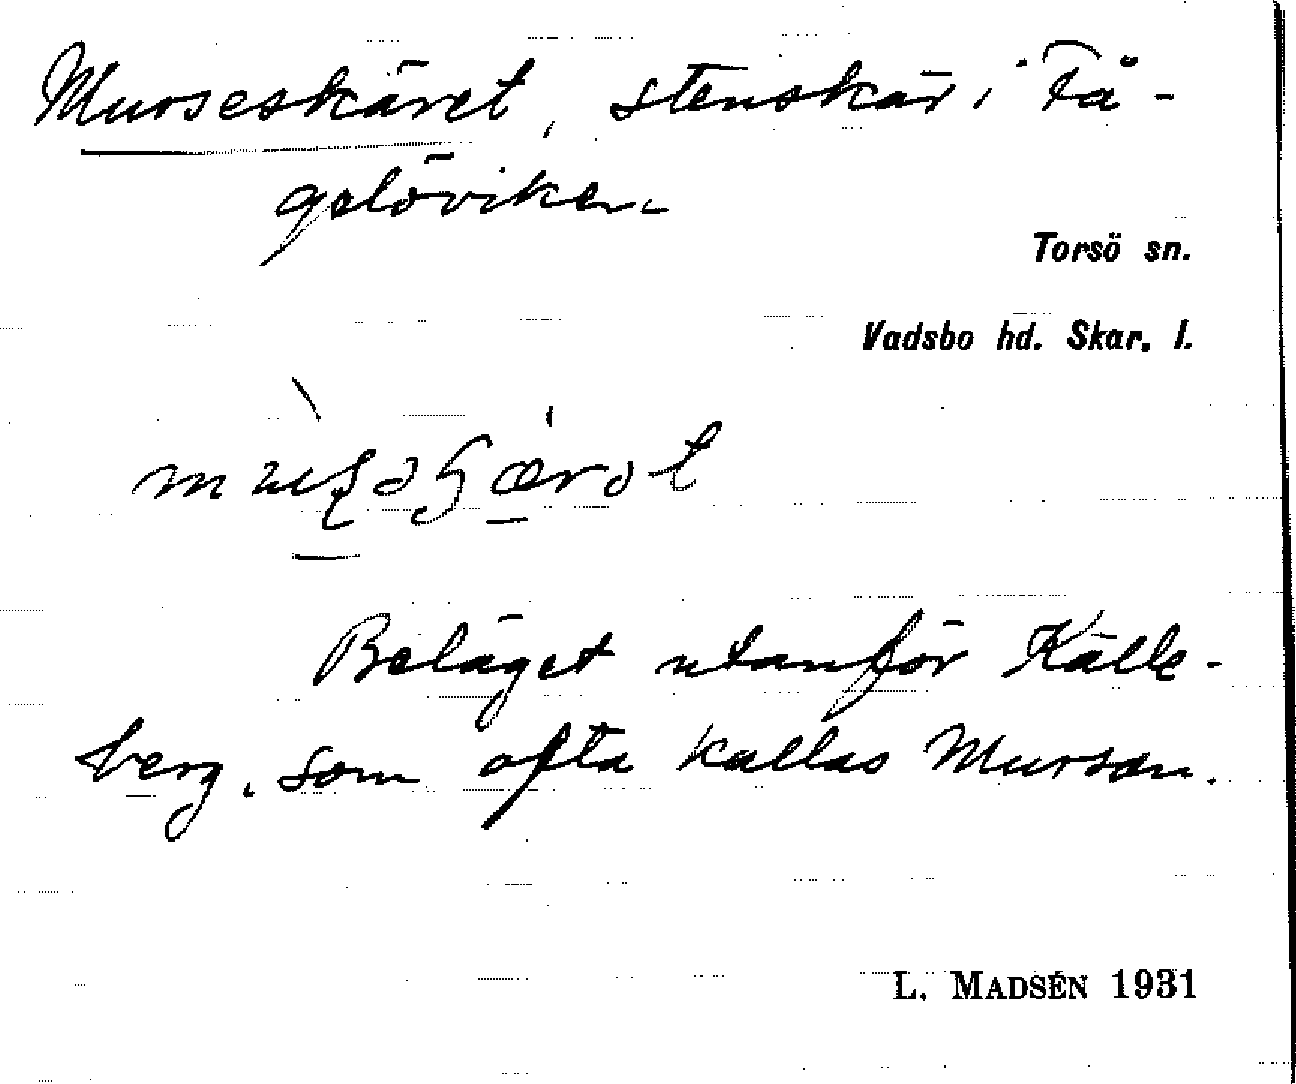 Murseskäret, stenskär i Få-
gelöviken.
Torsö sn.
Vadsbo hd. Skar. l.
Beläget utanför Källe-
berg, som ofta kallas Mursan.
L. MADSÉN 1931